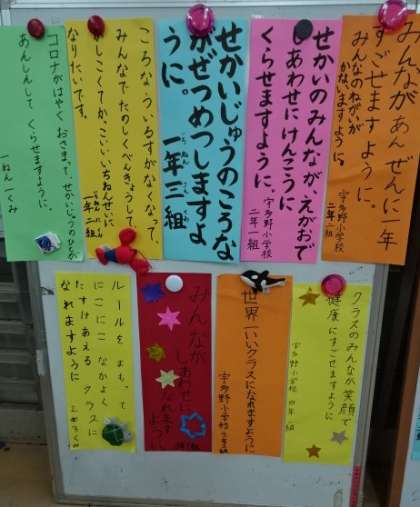 みんながあんぜんに一年
すごせますように。
みんなのねがいが
かないますように。
宇多野小学校
二年二組
せかいのみんなが、えがおで
しあわせにけんこうに
くらせますように。
宇多野小学校
二年一組
せかいじゅうのころな
がぜつめつしますよ
うに。
一年三組
ころなういるすがなくなって、
みんなでたのしくべんきょうして
かしこくてかっこいいいちねんせいに
なりたいです。
一年二組
コロナがはやくおさまって、せかいじゅうのひとが
あんしんしてくらせますように。
一ねん一くみ
クラスのみんなが笑顔で
健康にすごせますように
宇多野小学校
世界一いいクラスになれますように
宇多野小学校
みんなが
しあわせに
なれます
ように
ルールをまもって
にこにこなかよく
たすけあえるクラスに
なれますように